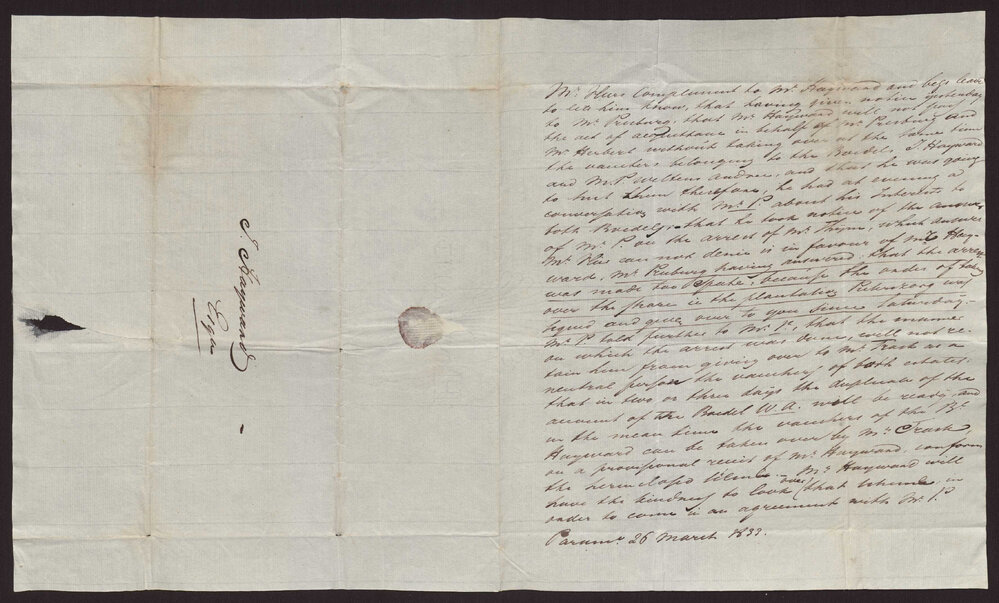 J. Hayward
Esqr
Mr. compliment to Mr. Hayward and begs leave
to let him know, that having given notice yesterday
to Mr. that Mr. Hayward will not pass
the act of in behalf of Mr. and
Mr. Herbert without taking over at the same time
the vouchers belonging to the Boedels J. Hayward
and and that he was going
to them therefore, he had at evening a
conversation with Mr. P. about his Interests to
both Boedels, that he took notice of the answer
of Mr. P. on the arrest of Mr. which answer
Mr. can not denie is in favour of Mr. Hay-
ward, Mr. having answered that the arrest
was made too because the order of taking
over the share in the plantation was
and given over to you since Saturday.
Mr. P. told further to Mr. that the manner
on which the arrest was done, will not re-
tain him from giving over to Mr. Trask as a
neutral person the vouchers of both estates.
that in two or three days the duplicate of the
account of the Boedel W. A. will be ready, and
in the mean time the vouchers of the Bl.
Hayward can be taken over by Mr. Trask,
on a provisional receit of Mr. Hayward, conform
the hereinclosed Mr. Hayward will
have the kindness to look over that in
order to come in an agreement with Mr. P.
Paramo. 26 March 1833.